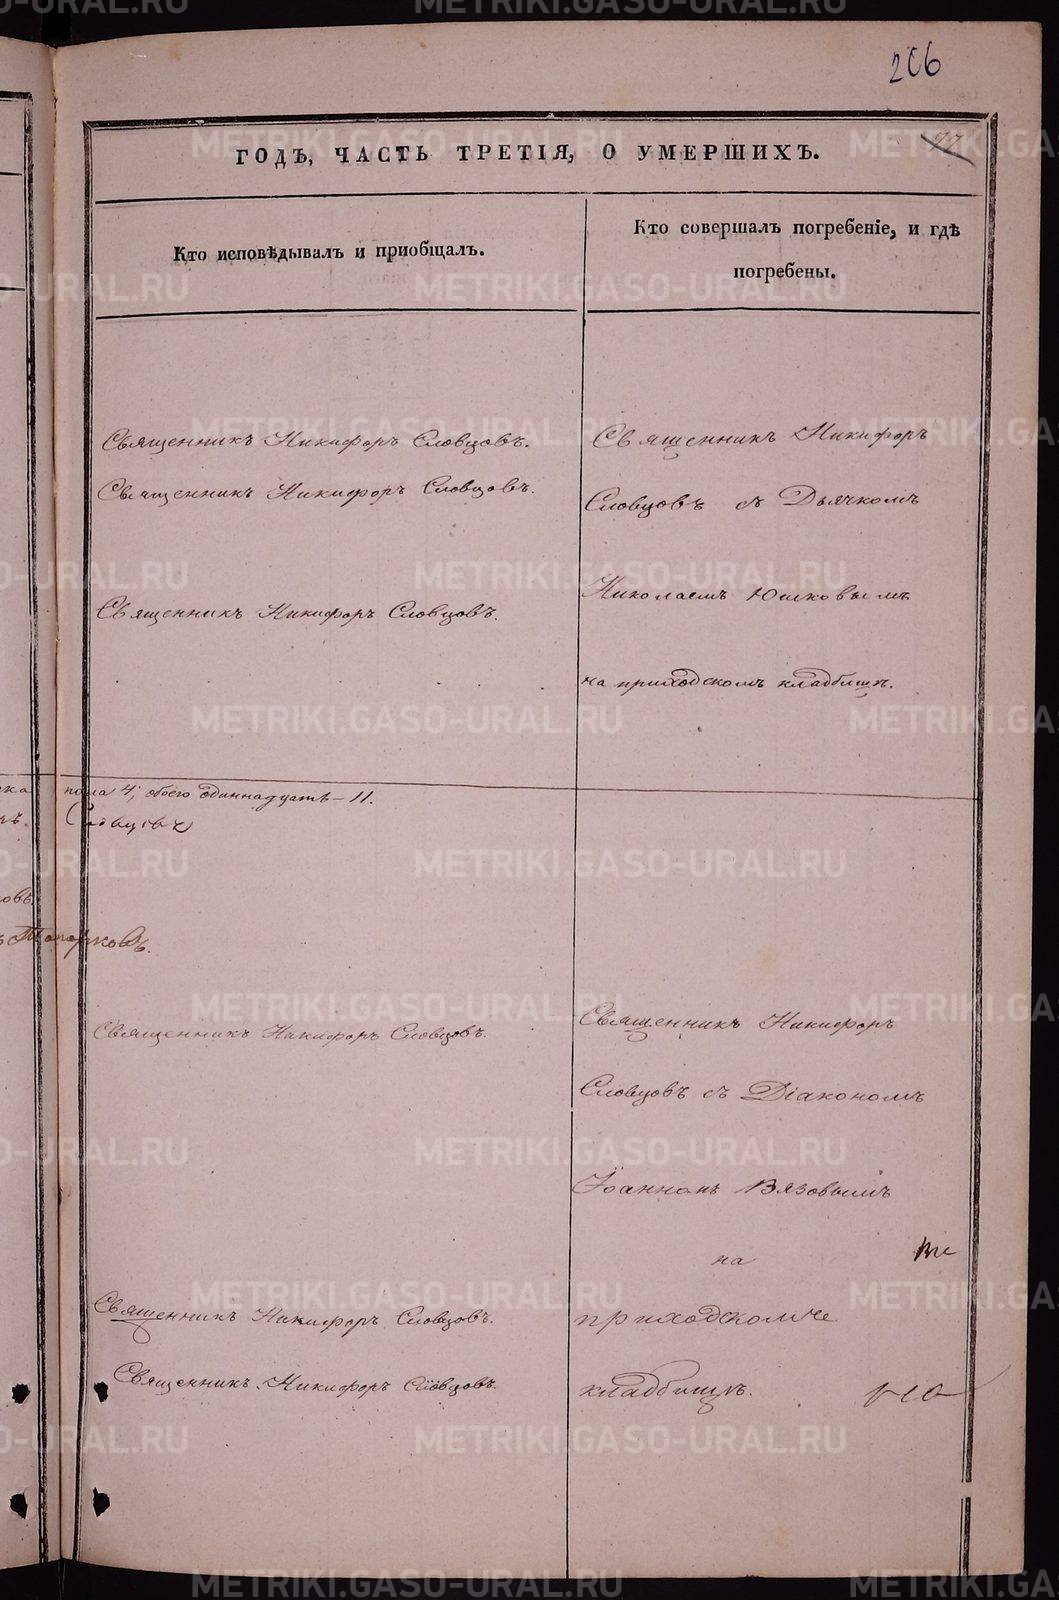 206
77
ГОДЪ, ЧАСТЬ ТРЕТІЯ, О УМЕРШИХЪ.
Кто исповѣдывалъ и приобщалъ.
Кто совершалъ погребеніе, и гдѣ
погребены.
Священникъ Никифоръ Словцовъ.
Священникъ Никифоръ Словцовъ.
Священникъ Никифоръ Словцовъ.
Священникъ Никифоръ
Словцовъ съ Дьячкомъ
Николаемъ Юшковымъ
на приходскомъ кладбищѣ.
пола 4, обоего одиннадцать – 11.
Словцовъ
Топорковъ.
Священникъ Никифоръ Словцовъ.
Священникъ Никифоръ Словцовъ.
Священникъ Никифоръ Словцовъ.
Священникъ Никифоръ
Словцовъ съ Діакономъ
Іоанномъ Вязовымъ
на
приходскомъ
кладбищѣ.
METRIKI.GASO-URAL.RU